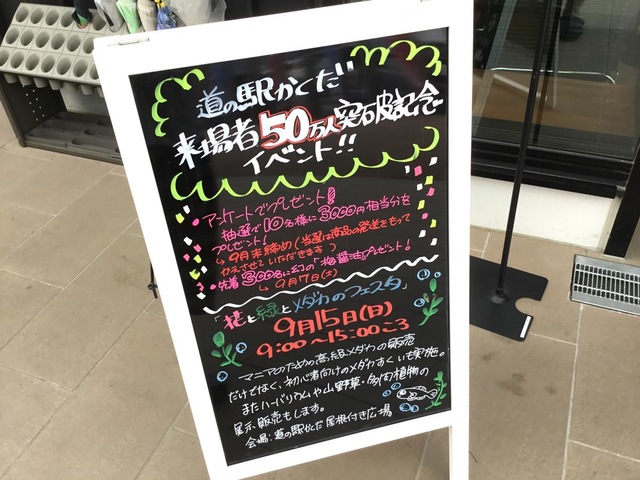 道の駅かくだ
来場者50万人突破記念
イベント!!
アンケートでプレゼント!
抽選で10名様に3000円相当分を
プレゼント!
↳9月末締め(当選は商品の発送をもって
かえさせていただきます)
先着300名に幻の「梅醤油」プレゼント!
↳9月7日(土)
「花と緑とメダカのフェスタ」
9月15日(日)
9:00〜15:00ころ
マニアのための高級メダカの販売
だけでなく、初心者向けのメダカすくいも実施。
またハーバリウムや山野草・多肉植物の
展示、販売もします。
会場:道の駅かくだ 屋根付き広場